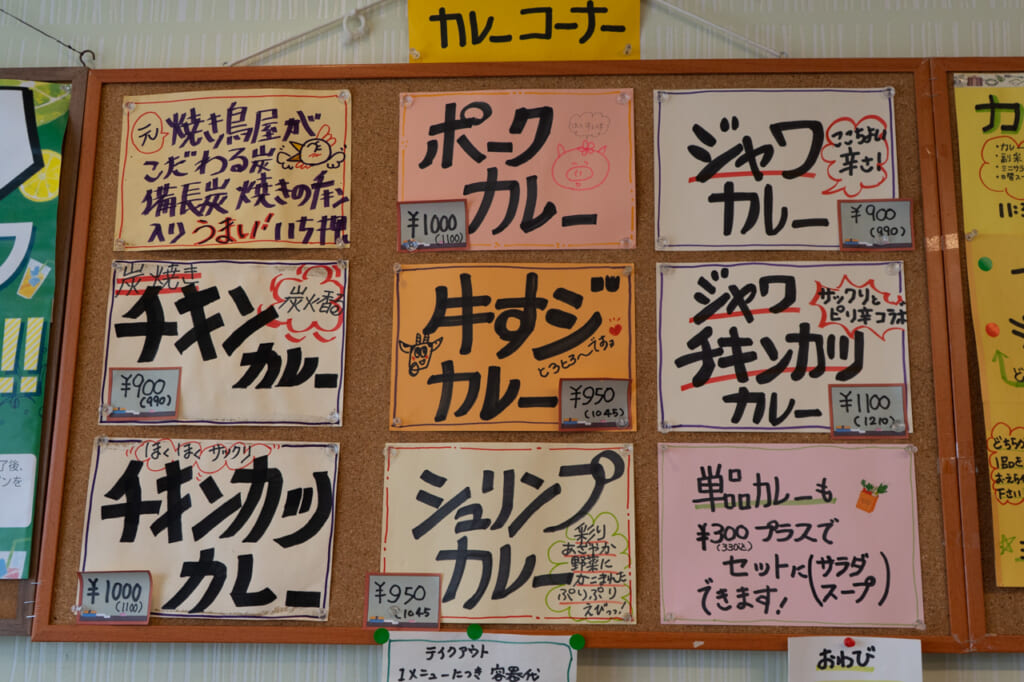 カレーコーナー
元
焼き鳥屋が
こだわる炭
備長炭焼きのチキン
入りうまい！いち押し
ポーク
カレー
¥1000
(1100)
ジャワ
カレー
ここちよい
辛さ！
¥900
(990)
炭焼き
チキン
カレー
炭火香る
¥900
(990)
牛すジ
カレー
とろとろ〜ですョ
¥950
(1045)
ジャワ
チキンカツ
カレー
サックリと
ピリ辛コラボ
¥1100
(1210)
ほくほくサックリ
チキンカツ
カレー
¥1000
(1100)
シュリンプ
カレー
彩り
あざやか
野菜に
かこまれた
ぷりぷり
えびっっ！
¥950
1045
単品カレーも
¥300プラスで
(330込)
セットに(サラダ
スープ)
できます！
テイクアウト
1メニューにつき 容器代
おわび
11:3
どちら
1品を
おえらび
下さい